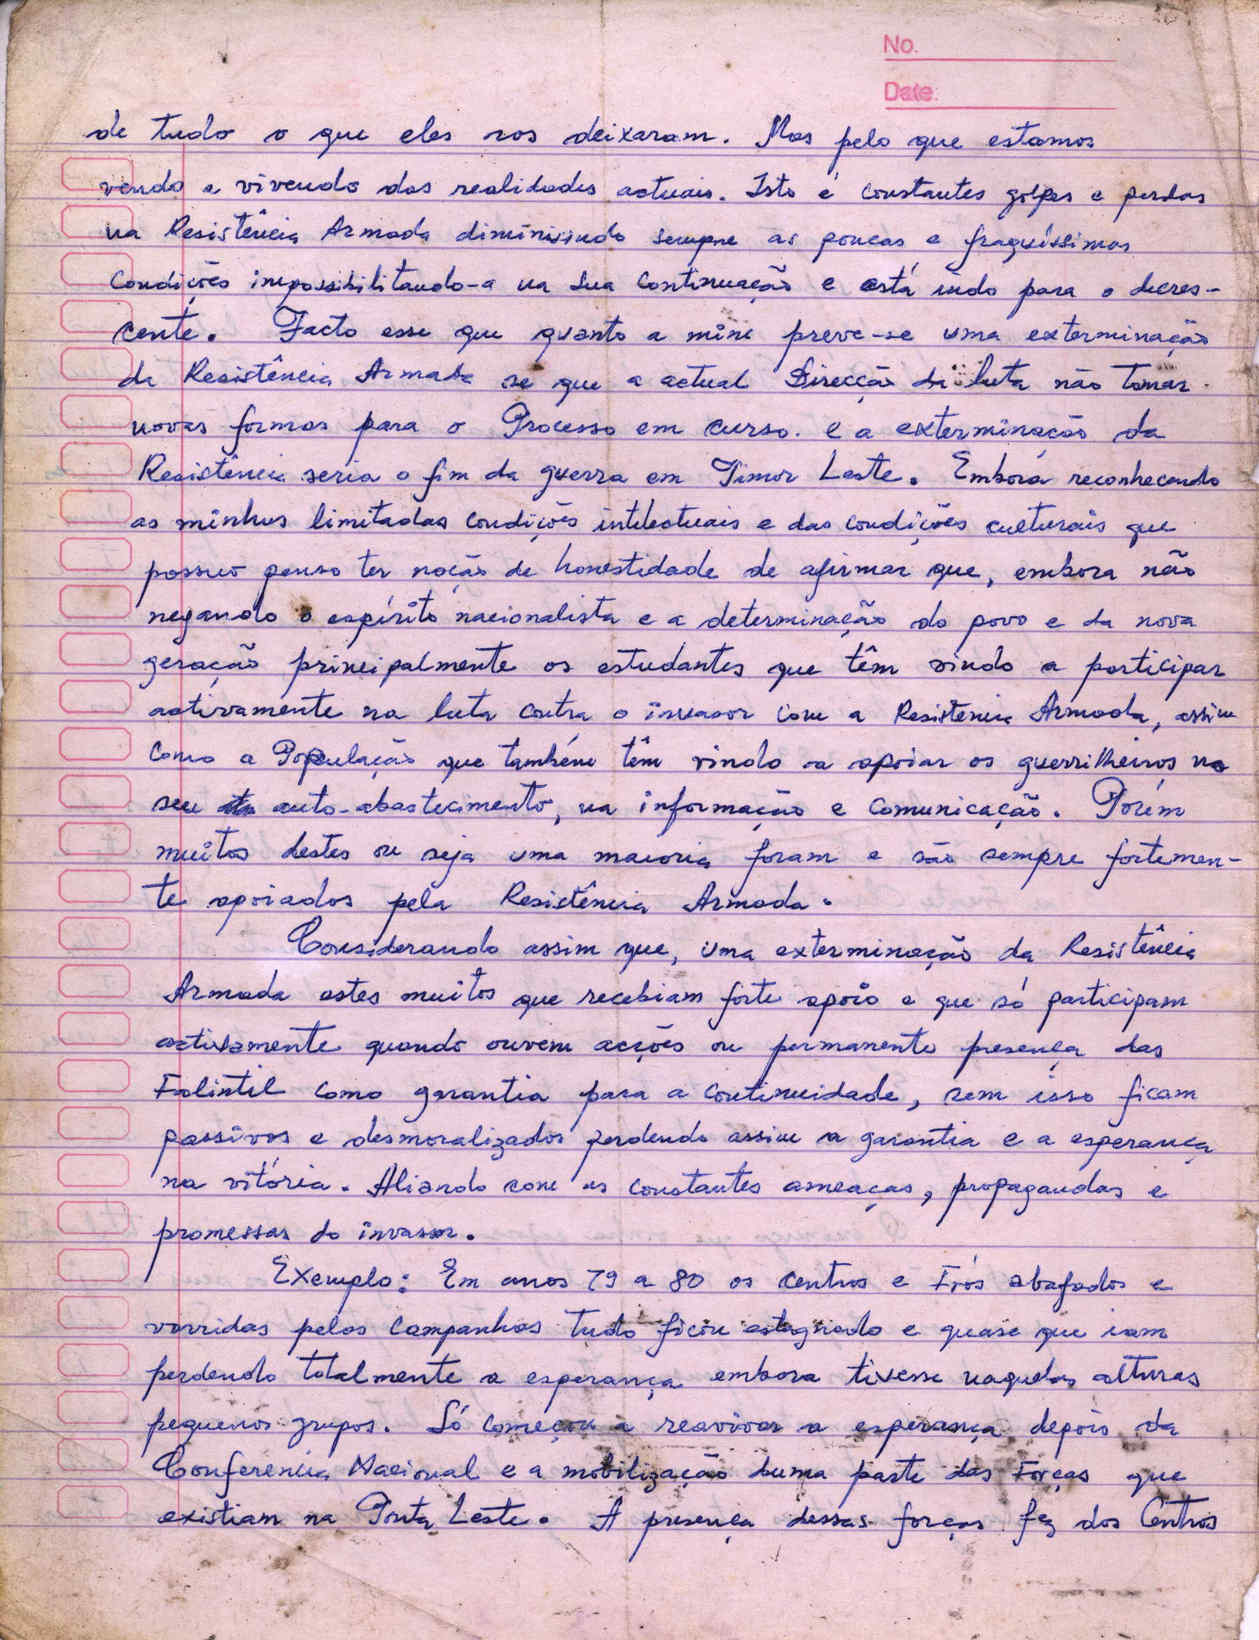 No.
Date:
de tudo o que eles nos deixaram. Mas pelo que estamos
vendo e vivendo das realidades actuais. Isto é constantes golpes e perdas
na Resistência Armada diminuindo sempre as poucas e fraquíssimas
condições impossibilitando-a na sua continuação e está indo para o decres-
cente. Facto esse que quanto a mim preve-se uma exterminação
da Resistência Armada se que a actual Direcção da luta não tomar
novas formas para o Processo em curso. e a exterminação da
Resistência seria o fim da guerra em Timor Leste. Embora reconhecendo
as minhas limitadas condições intilectuais e das condições culturais que
possuo penso ter noção de honestidade de afirmar que, embora não
negando o espírito nacionalista e a determinação do povo e da nova
geração principalmente os estudantes que têm vindo a participar
activamente na luta contra o invasor com a Resistência Armada, assim
como a População que também têm vindo a apoiar os guerrilheiros no
seu auto-abastecimento, na informação e comunicação. Porém
muitos destes ou seja uma maioria foram e são sempre fortemen-
te apoiados pela Resistência Armada.
Considerando assim que, uma exterminação da Resistência
Armada estes muitos que recebiam forte apoio e que só participam
activamente quando ouvem acções ou permanente presença das
Falintil como garantia para a continuidade, sem isso ficam
passivos e desmoralizados perdendo assim a garantia e a esperança
na vitória. Aliando com as constantes ameaças, propagandas e
promessas do invasor.
Exemplo: Em anos 79 a 80 os centros e Frós abafados e
varridas pelas campanhas tudo ficou estagnado e quase que iam
perdendo totalmente a esperança embora tivesse naquelas alturas
pequenos grupos. Só começou a reavivar a esperança depois da
Conferencia Nacional e a mobilização duma parte das Forças que
existiam na Ponta Leste. A presença dessas forças fez dos Centros